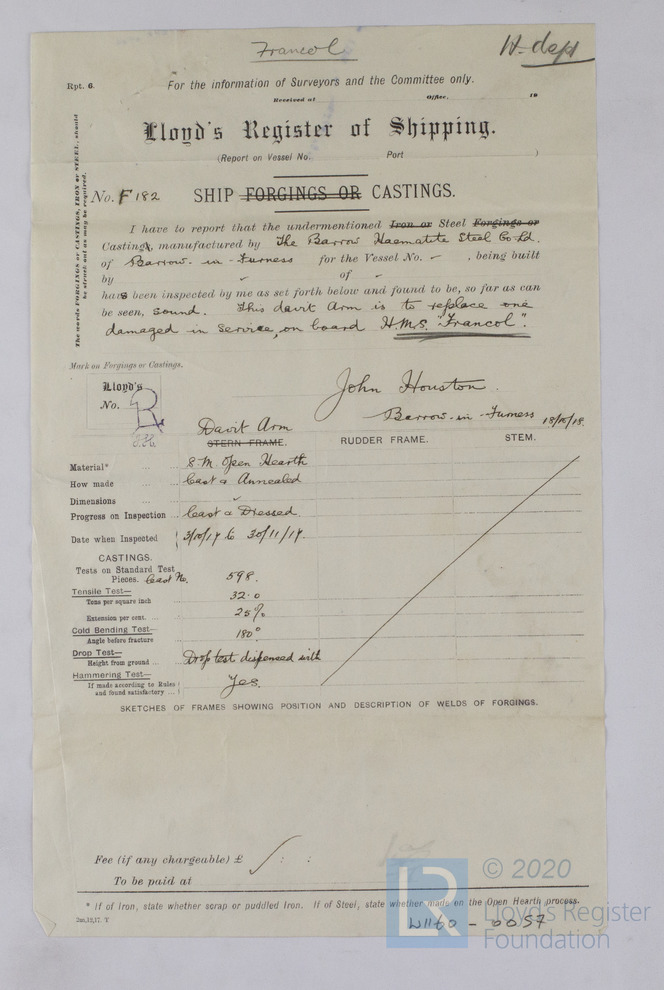 Francol
H. dept
Rpt. 6.
For the information of Surveyors and the Committee only.
Received at Office, 19
Lloyd's Register of Shipping.
(Report on Vessel No. Port )
The words FORGINGS or CASTINGS, IRON or STEEL, should
be struck out as may be required.
No. F 182 SHIP FORGINGS OR CASTINGS.
I have to report that the undermentioned Iron or Steel Forgings or
Casting, manufactured by The Barrow Haematite Steel Co Ld.
of Barrow-in-Furness for the Vessel No. - , being built
by of
has been inspected by me as set forth below and found to be, so far as can
be seen, sound. This davit Arm is to replace one
damaged in service, on board H.M.S. "Francol".
Mark on Forgings or Castings.
Lloyd's
No.
John Houston.
Barrow-in-Furness 18/10/18.
Davit Arm
STERN FRAME. RUDDER FRAME. STEM.
Material* S. M. Open Hearth
How made Cast & Annealed
Dimensions
Progress on Inspection Cast & Dressed.
Date when Inspected 3/10/17 to 30/11/17.
CASTINGS.
Tests on Standard Test
Pieces. Cast No. 598.
Tensile Test—
Tons per square inch 32.0
Extension per cent. 25%
Cold Bending Test—
Angle before fracture 180°
Drop Test—
Height from ground Drop test dispensed with
Hammering Test—
If made according to Rules
and found satisfactory Yes.
SKETCHES OF FRAMES SHOWING POSITION AND DESCRIPTION OF WELDS OF FORGINGS.
Fee (if any chargeable) £ : :
To be paid at
* If of Iron, state whether scrap or puddled Iron. If of Steel, state whether made on the Open Hearth process.
2m,12,17. T.
W1160 - 0057
LR
© 2020
Lloyd's Register
Foundation